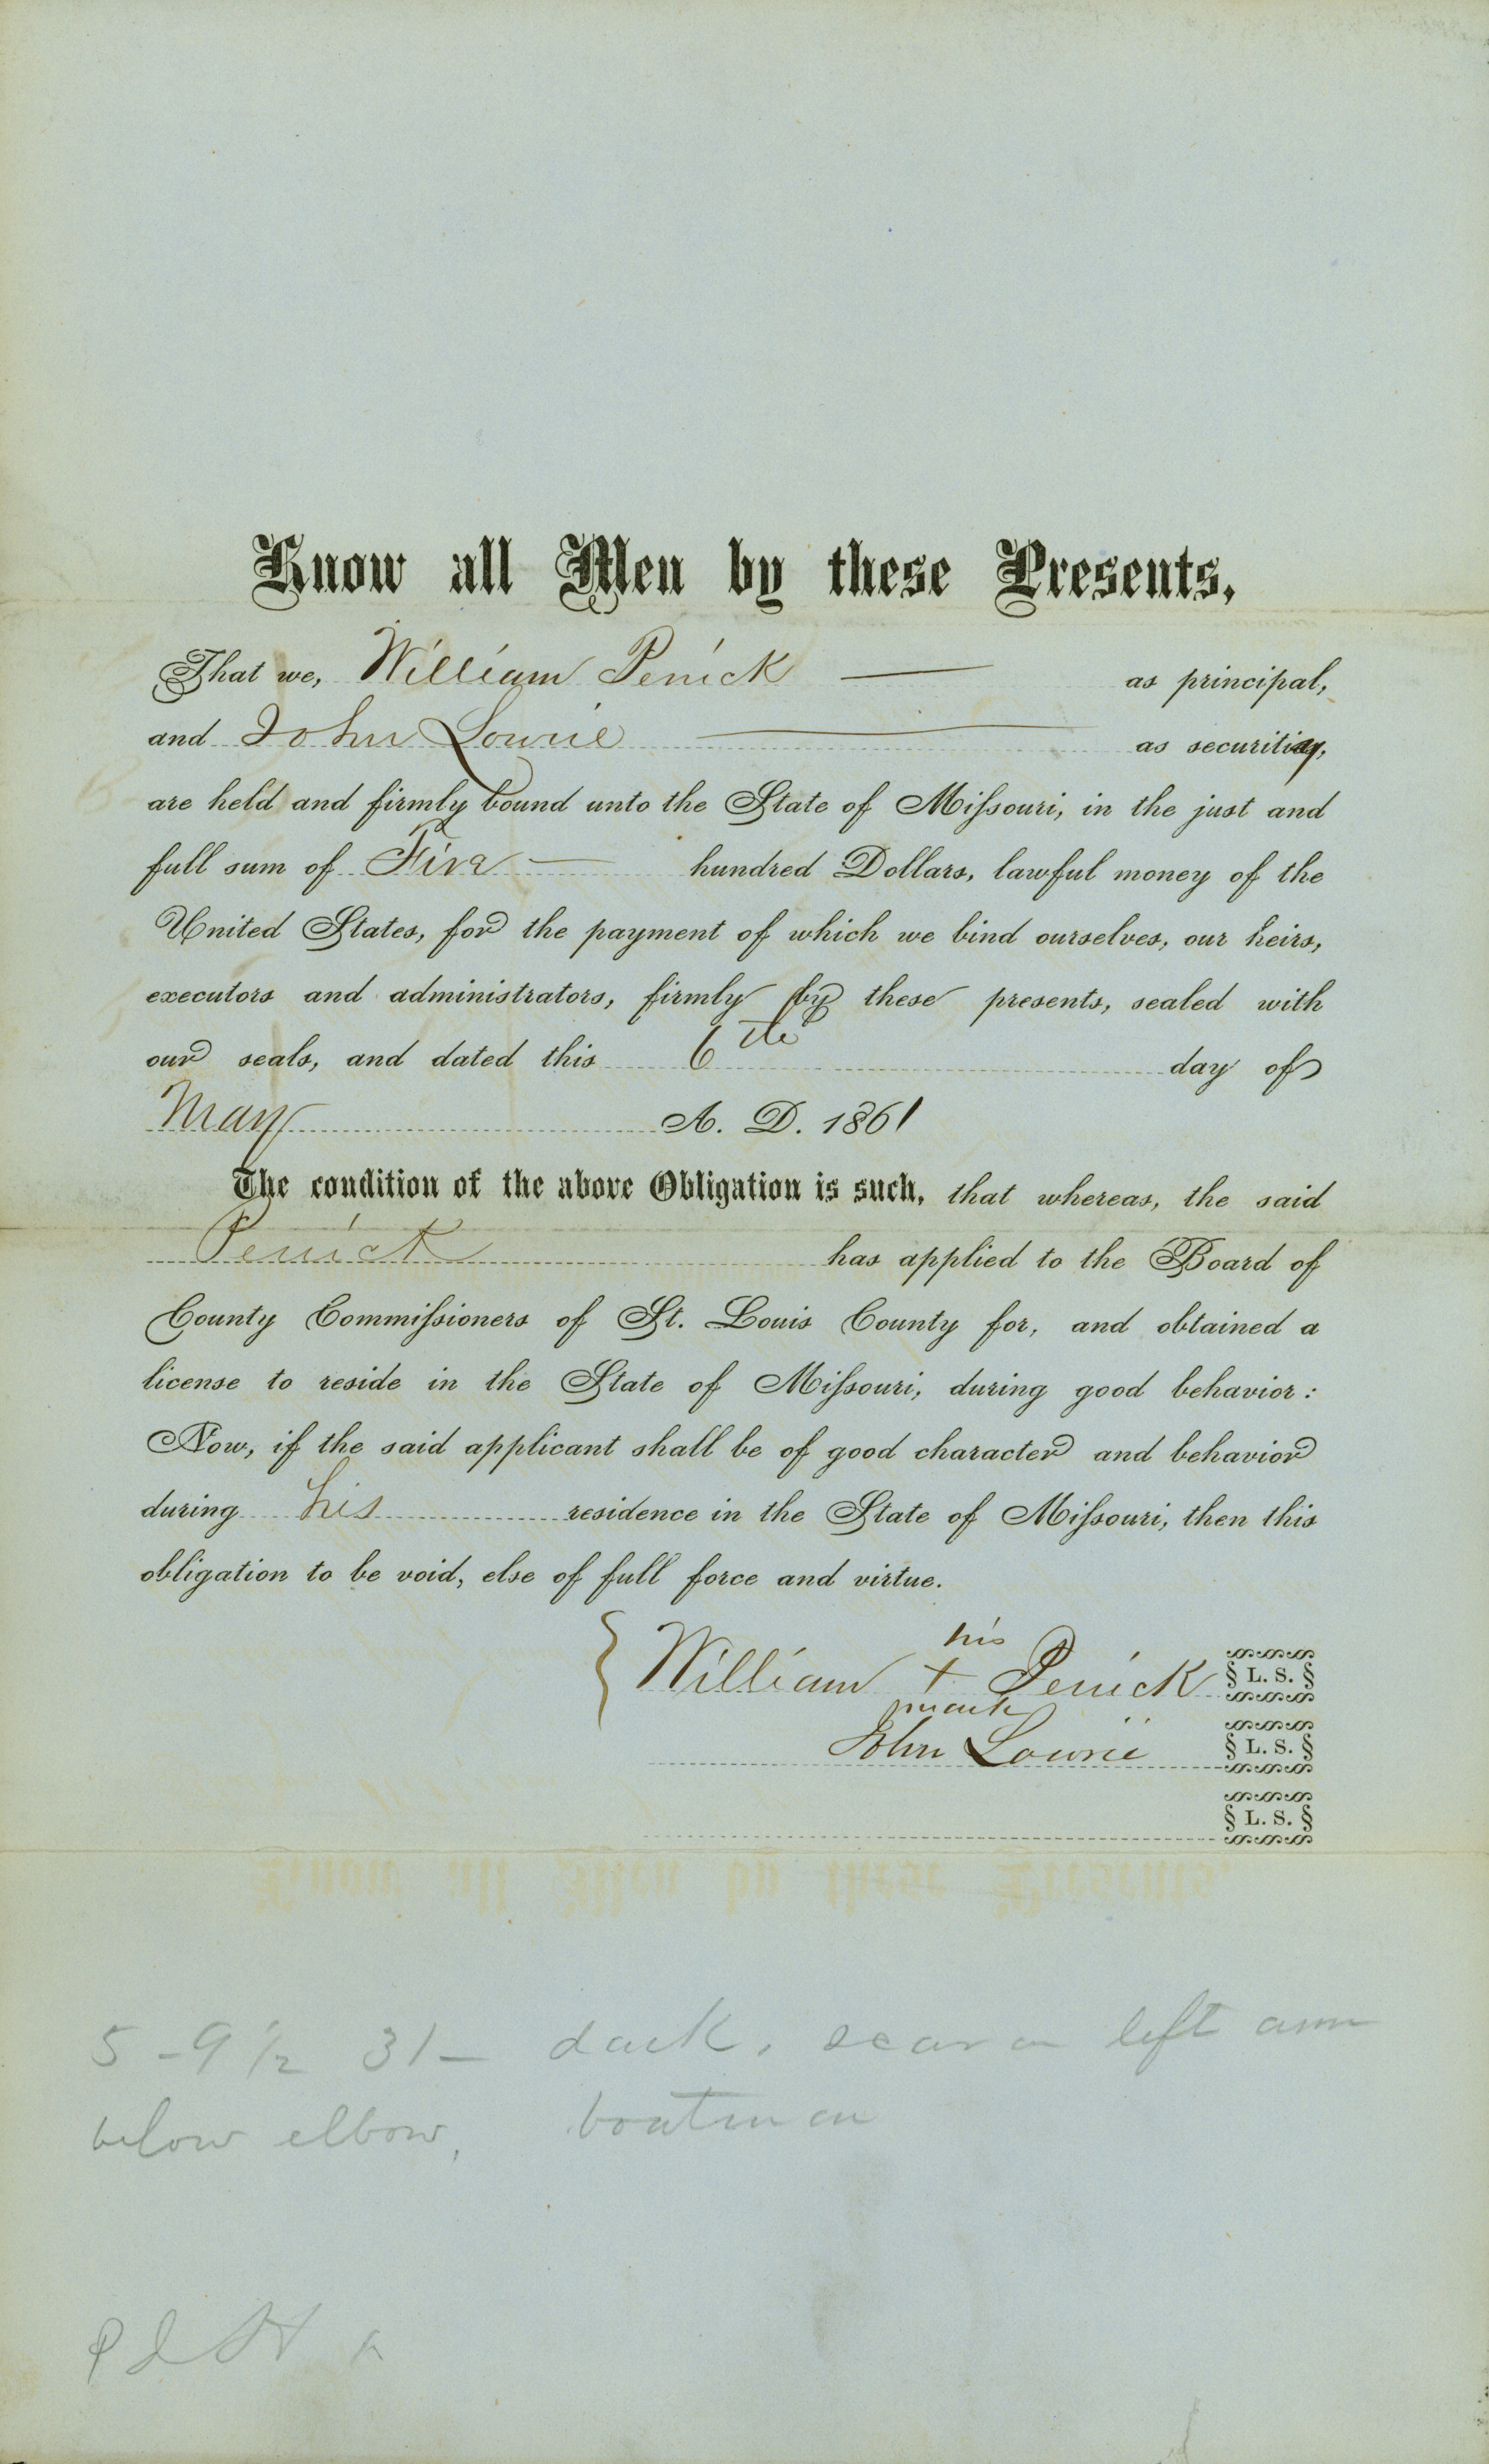 Know all Men by these Presents,
That we, William Penick — as principal,
and John Lowrie — as security,
are held and firmly bound unto the State of Missouri, in the just and
full sum of Five — hundred Dollars, lawful money of the
United States, for the payment of which we bind ourselves, our heirs,
executors and administrators, firmly by these presents, sealed with
our seals, and dated this 6th day of
May A. D. 1861
The condition of the above Obligation is such, that whereas, the said
Penick has applied to the Board of
County Commissioners of St. Louis County for, and obtained a
license to reside in the State of Missouri, during good behavior:
Now, if the said applicant shall be of good character and behavior
during his residence in the State of Missouri, then this
obligation to be void, else of full force and virtue.
his
William + Penick § L. S. §
mark
John Lowrie § L. S. §
§ L. S. §
5-9 1/2 31- dark, scar on left arm
below elbow, boatman